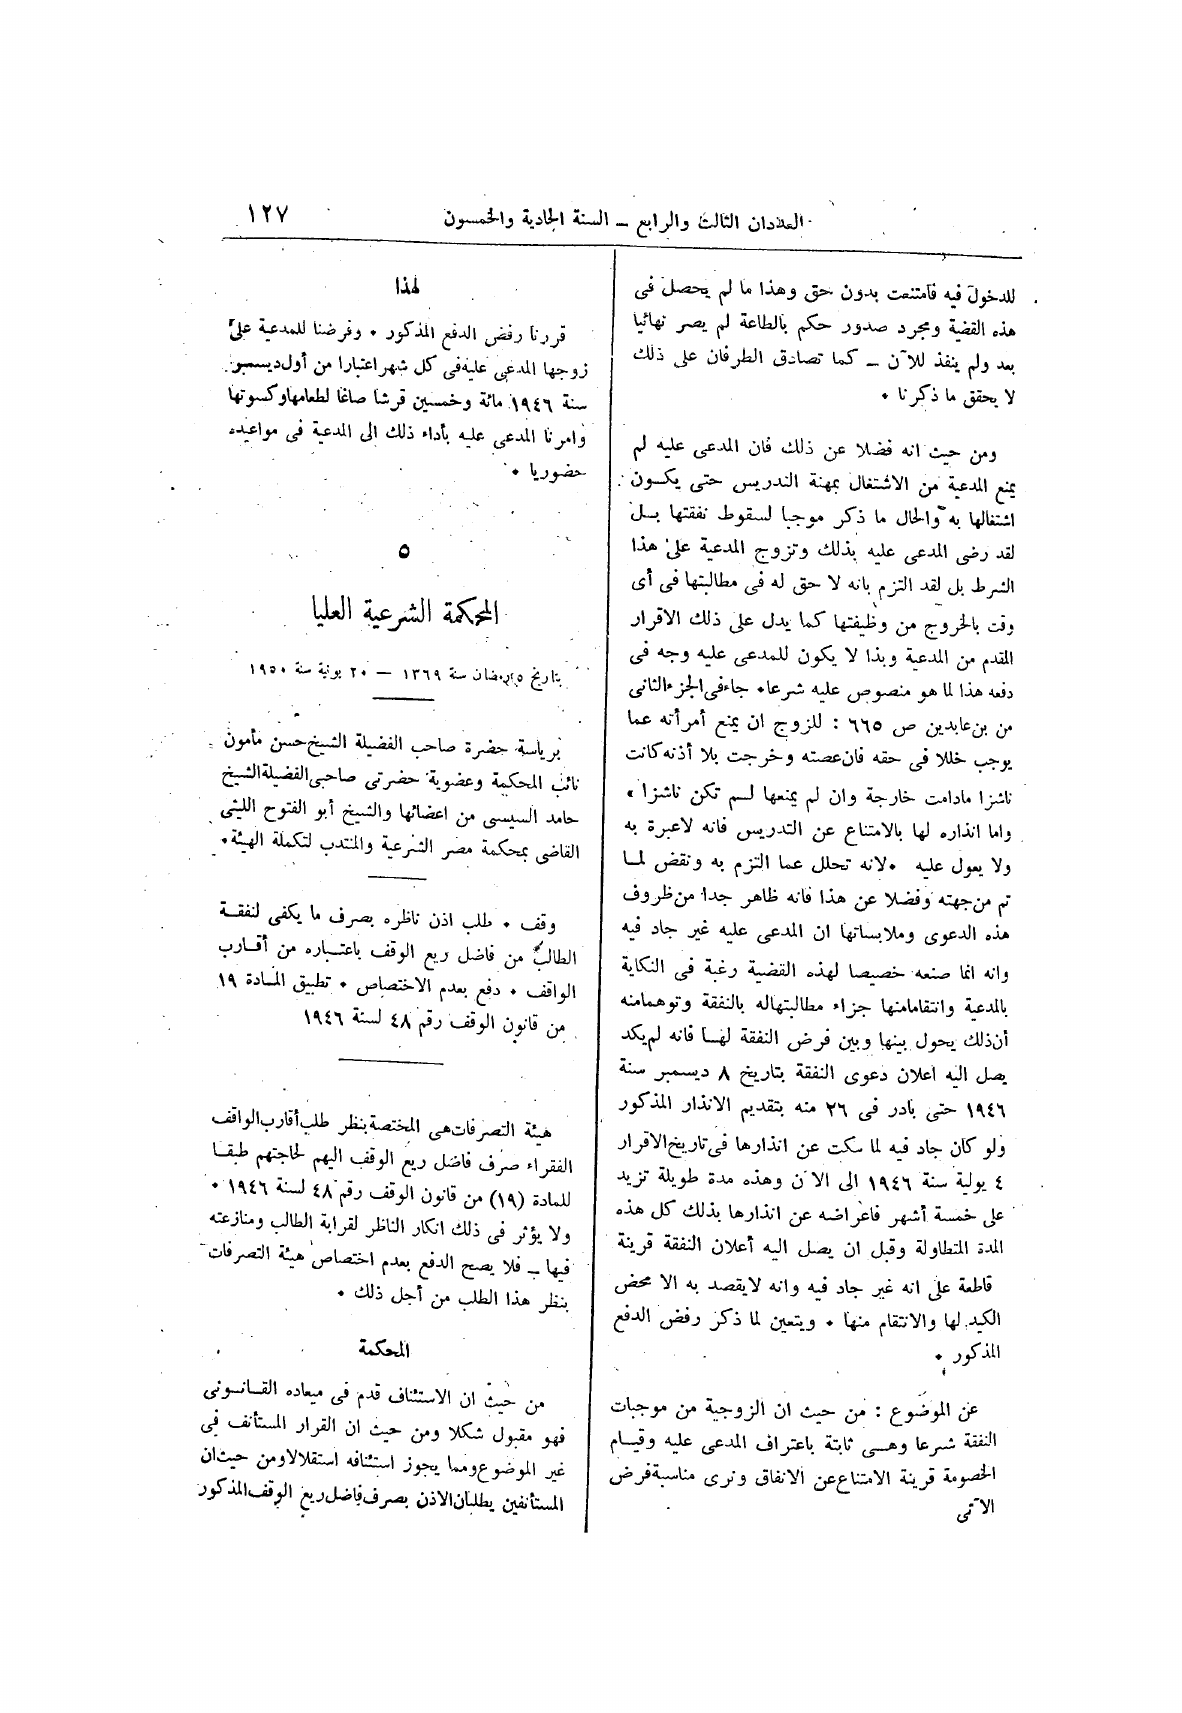 العددان الثالث والرابع – السنة الحادية والخمسون
١٢٧
للدخول فيه فامتنعت بدون حق وهذا ما لم يحصل فى
هذه القضية ومجرد صدور حكم بالطاعة لم يصر نهائيا
بعد ولم ينفذ للآن – كما تصادق الطرفان على ذلك
لا يحقق ما ذكرنا ٠
ومن حيث انه فضلا عن ذلك فان المدعى عليه لم
يمنع المدعية من الاشتغال بمهنة التدريس حتى يكون
اشتغالها به والحال ما ذكر موجبا لسقوط نفقتها بل
لقد رضى المدعى عليه بذلك وتزوج المدعية على هذا
الشرط بل لقد التزم بانه لا حق له فى مطالبتها فى أى
وقت بالخروج من وظيفتها كما يدل على ذلك الاقرار
المقدم من المدعية وبذا لا يكون للمدعى عليه وجه فى
دفعه هذا لما هو منصوص عليه شرعا٠ جاء فى الجزء الثانى
من بن عابدين ص ٦٦٥ : للزوج ان يمنع أمرأته عما
يوجب خللا فى حقه فان عصته وخرجت بلا أذنه كانت
ناشزا مادامت خارجة وان لم يمنعها لم تكن ناشزا ٠
واما انذاره لها بالامتناع عن التدريس فانه لاعبرة به
ولا يعول عليه ٠لانه تحلل عما التزم به ونقض لما
تم من جهته وفضلا عن هذا فانه ظاهر جدا من ظروف
هذه الدعوى وملابساتها ان المدعى عليه غير جاد فيه
وانه انما صنعه خصيصا لهذه القضية رغبة فى النكاية
بالمدعية وانتقامامنها جزاء مطالبتهاله بالنفقة وتوهمامنه
أن ذلك يحول بينها وبين فرض النفقة لها فانه لم يكد
يصل اليه اعلان دعوى النفقة بتاريخ ٨ ديسمبر سنة
١٩٤٦ حتى بادر فى ٢٦ منه بتقديم الانذار المذكور
ولو كان جاد فيه لما سكت عن انذارها فى تاريخ الاقرار
٤ يولية سنة ١٩٤٦ الى الآن وهذه مدة طويلة تزيد
على خمسة أشهر فاعراضه عن انذارها بذلك كل هذه
المدة المتطاولة وقبل ان يصل اليه أعلان النفقة قرينة
قاطعة على انه غير جاد فيه وانه لايقصد به الا محض
الكيد لها والانتقام منها ٠ ويتعين لما ذكر رفض الدفع
المذكور ٠
عن الموضوع : من حيث ان الزوجية من موجبات
النفقة شرعا وهى ثابتة باعتراف المدعى عليه وقيام
الخصومة قرينة الامتناع عن الانفاق ونرى مناسبة فرض
الآتى
لهذا
قررنا رفض الدفع المذكور ٠ وفرضنا للمدعية على
زوجها المدعى عليه فى كل شهر اعتبارا من أول ديسمبر
سنة ١٩٤٦ مائة وخمسين قرشا صاغا لطعامها وكسوتها
وامرنا المدعى عليه بأداء ذلك الى المدعية فى مواعيده
حضوريا ٠
٥
المحكمة الشرعية العليا
بتاريخ ٥ رمضان سنة ١٣٦٩ – ٢٠ يونية سنة ١٩٥٠
برياسة حضرة صاحب الفضيلة الشيخ حسن مأمون
نائب المحكمة وعضوية حضرتى صاحبى الفضيلة الشيخ
حامد السيسى من اعضائها والشيخ أبو الفتوح الليثى
القاضى بمحكمة مصر الشرعية والمنتدب لتكملة الهيئة٠
وقف ٠ طلب اذن ناظره بصرف ما يكفى لنفقة
الطالب من فاضل ريع الوقف باعتباره من أقارب
الواقف ٠ دفع بعدم الاختصاص ٠ تطبيق المادة ١٩
من قانون الوقف رقم ٤٨ لسنة ١٩٤٦
هيئة التصرفات هى المختصة بنظر طلب أقارب الواقف
الفقراء صرف فاضل ريع الوقف اليهم لحاجتهم طبقا
للمادة (١٩) من قانون الوقف رقم ٤٨ لسنة ١٩٤٦ ٠
ولا يؤثر فى ذلك انكار الناظر لقرابة الطالب ومنازعته
فيها – فلا يصح الدفع بعدم اختصاص هيئة التصرفات
بنظر هذا الطلب من أجل ذلك ٠
المحكمة
من حيث ان الاستئناف قدم فى ميعاده القانونى
فهو مقبول شكلا ومن حيث ان القرار المستأنف فى
غير الموضوع ومما يجوز استئنافه استقلالا ومن حيث ان
المستأنفين يطلبان الاذن بصرف فاضل ريع الوقف المذكور